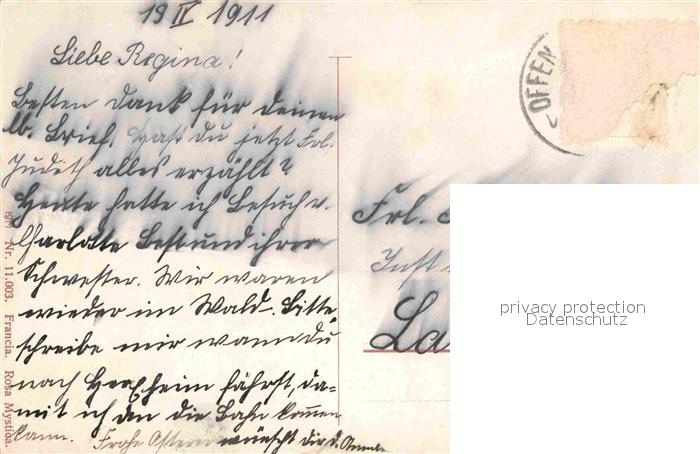 19 IV 1911
Liebe Regina!
Besten Dank für deinen
lb. Brief. Hast du jetzt Frl.
Judith alles erzählt?
Heute hatte ich Besuch v.
Charlotte Best und ihrer
Schwester. Wir waren
wieder im Wald. Bitte,
schreibe mir wann du
nach Herxheim fährst, da=
mit ich an die Bahn kommen
kann. Frohe Ostern wünscht dir d.
Nr. 11.003. Francia. Rosa Mystica.
OFFEN
Frl.
Inst
La
privacy protection
Datenschutz